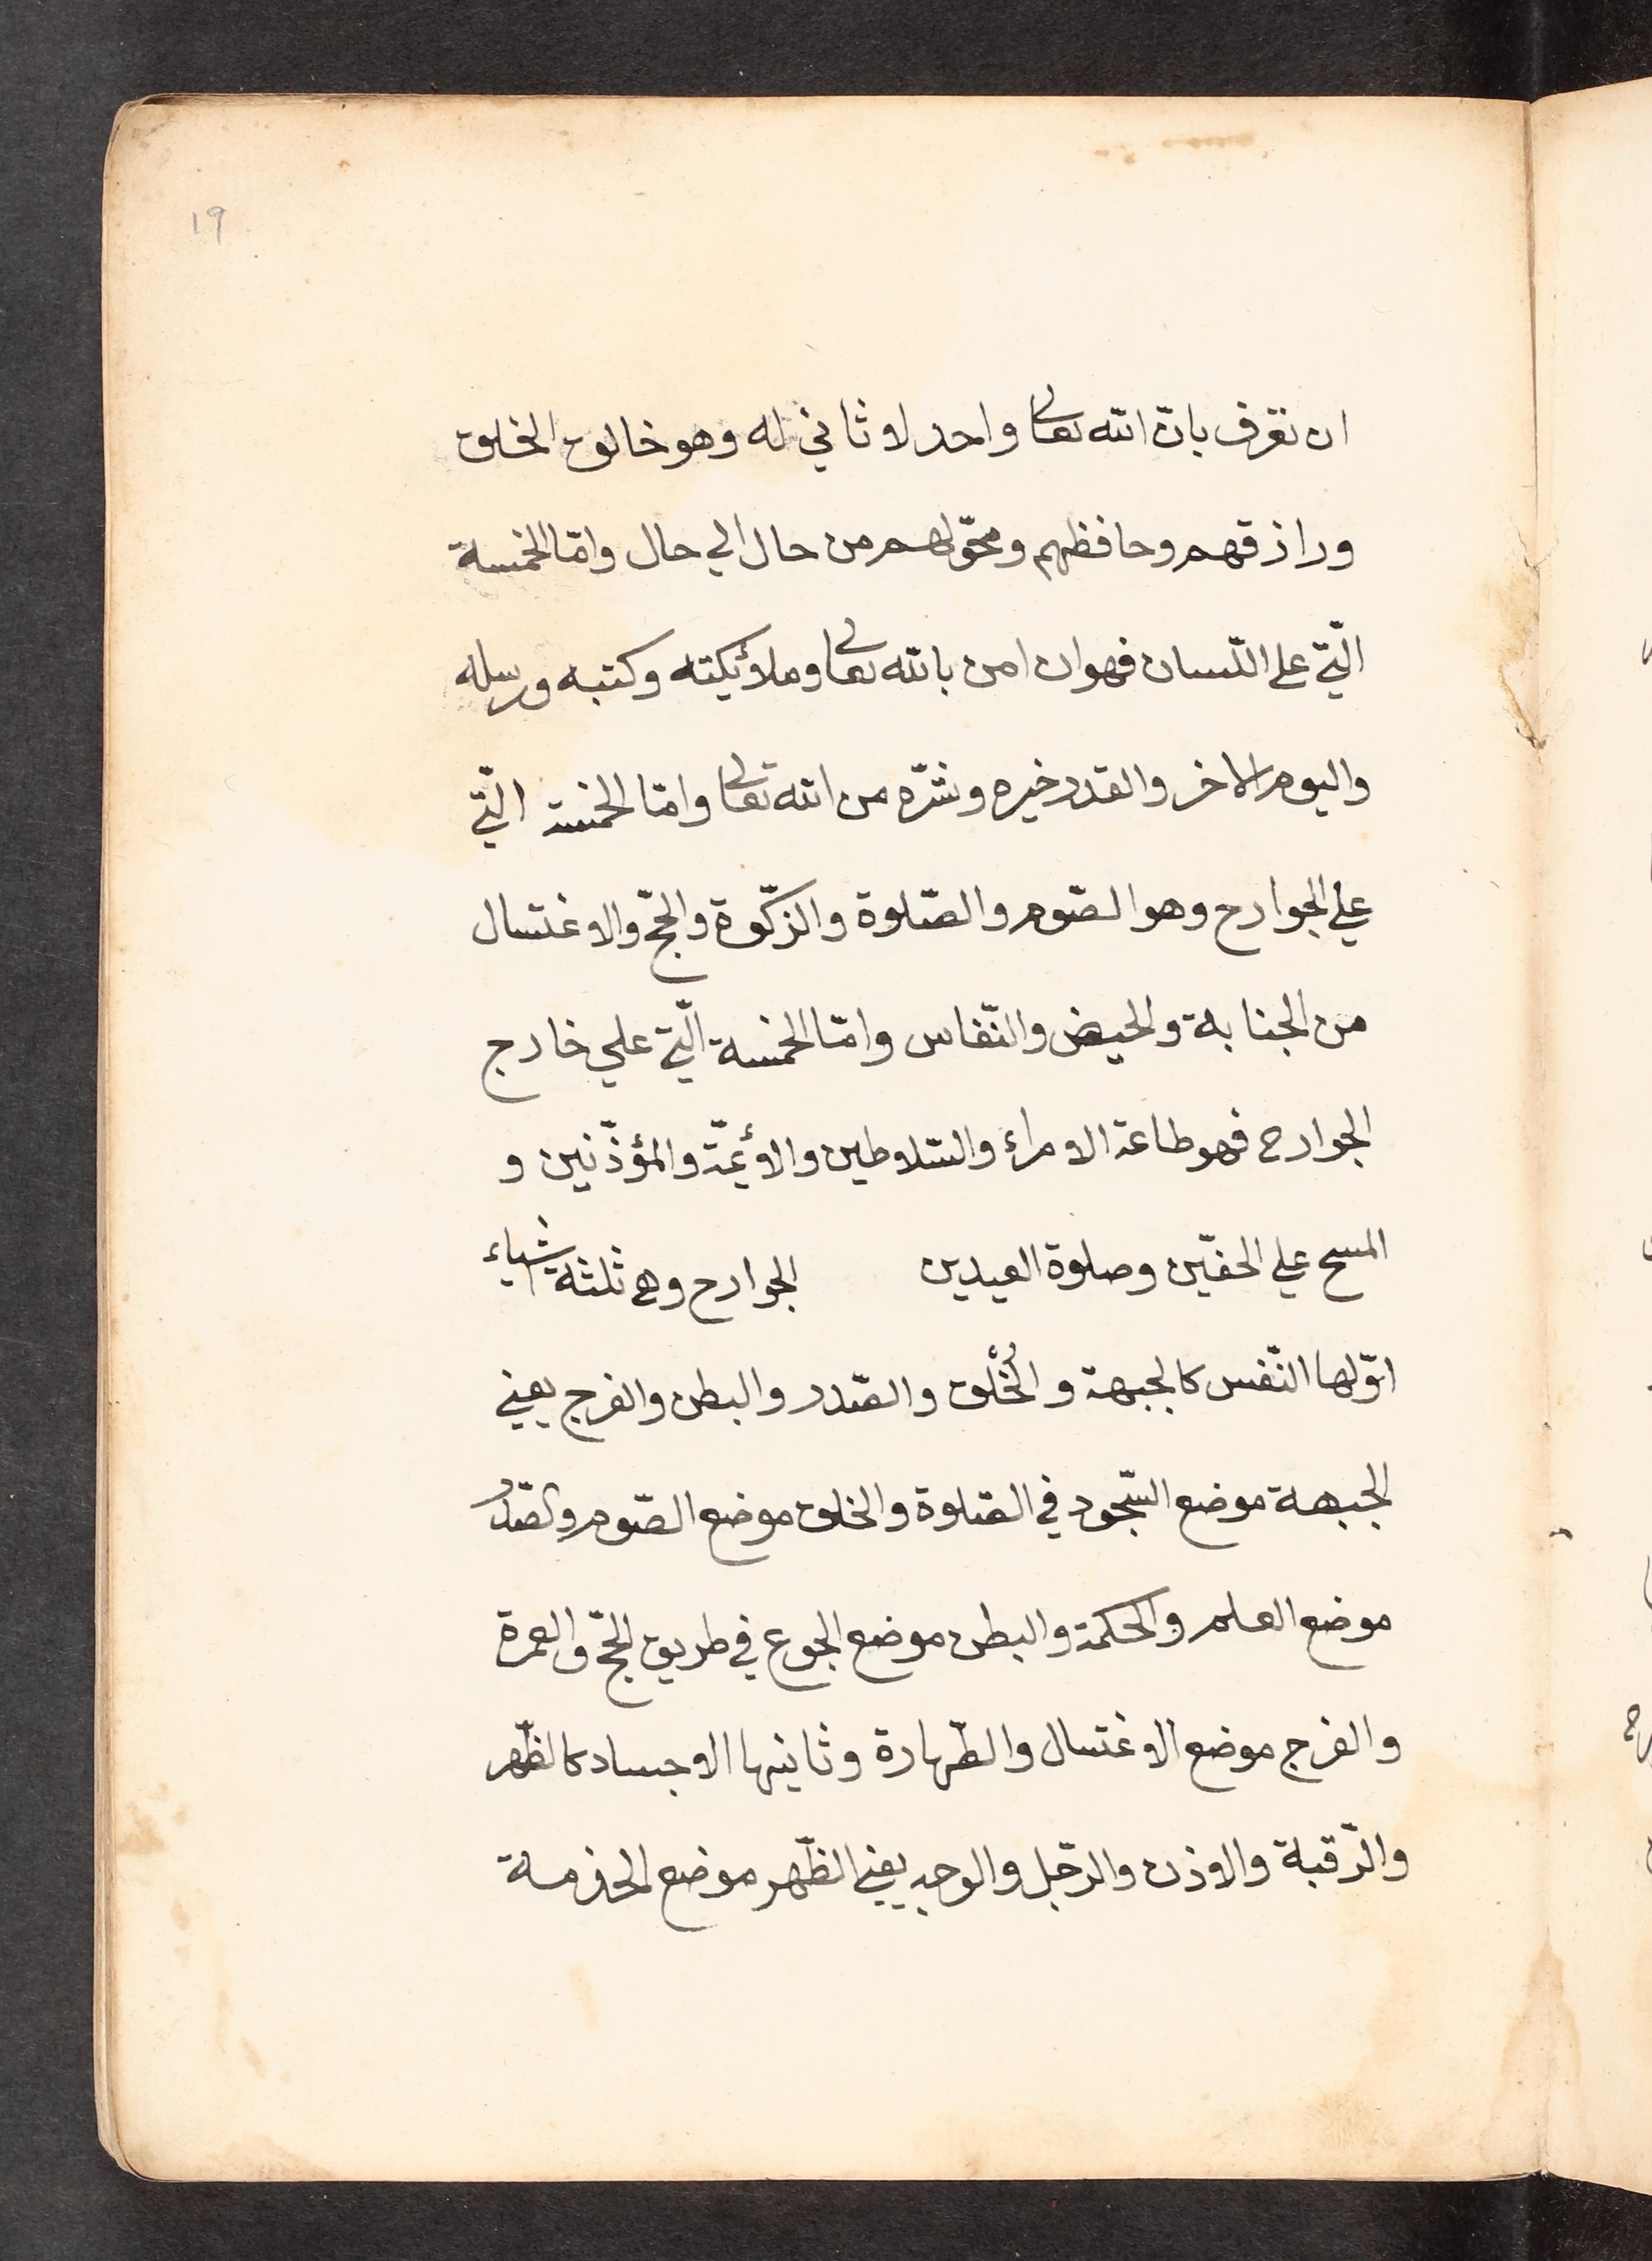 ١٩
ان نعرف بانّ الله تعالى واحد لا ثاني له وهو خالق الخلق
ورازقهم وحافظهم ومحوّلهم من حال الي حال وامّا الخمسة
الّتي على اللّسان فهو ان امن بالله تعالى وملائيكته وكتبه ورسله
واليوم الاخر والقدر خيره وشرّه من الله تعالى وامّا الخمسة الّتي
علي الجوارح وهو الصّوم والصّلوة والزكّوة والحجّ والاغتسال
من الجنابة والحيض والنّفاس وامّا الخمسة الّتي علي خارج
الجوارح فهو طاعة الامراء والسّلاطين والأئمّة والمؤذّنين و
المسح علي الخفّين وصلوة العيدين الجوارح وهي ثلثة اشياء
اوّلها النّفس كالجبهة والخُلْق والصّدر والبطن والفرج يعني
الجبهة موضع السّجود في الصّلوة والخلق موضع الصّوم والصّدر
موضع العلم والحكمة والبطن موضع الجوع في طريق الحجّ والعمرة
والفرج موضع الاغتسال والطّهارة وثانيها الاجساد كالظّهر
والرّقبة والاذن والرّجل والوجه يعني الظّهر موضع الخذمة